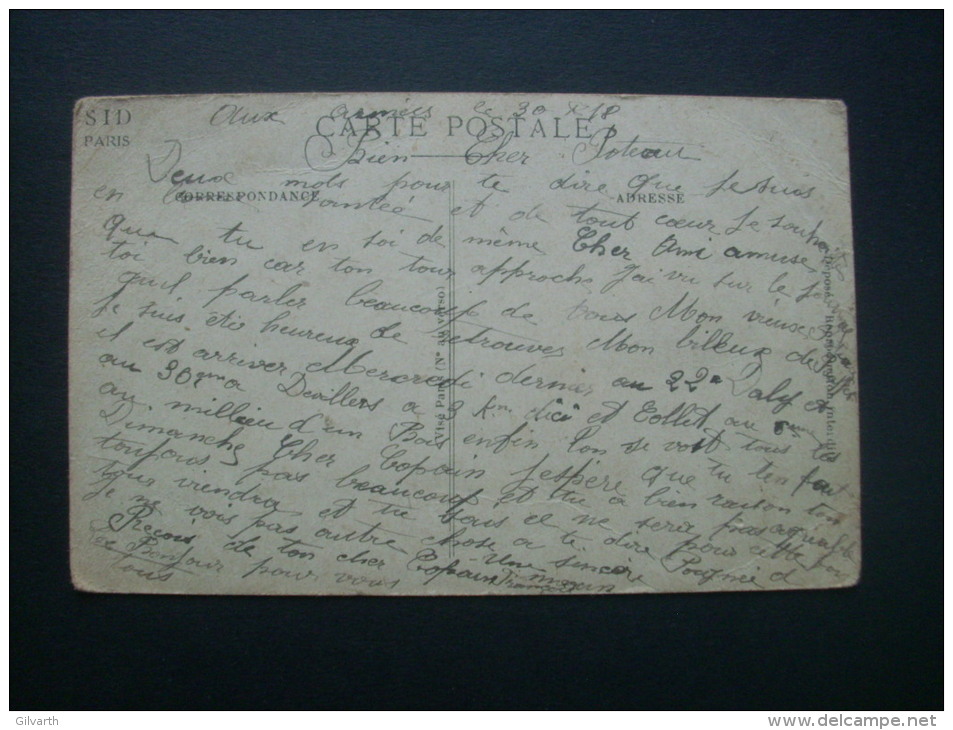 SID
PARIS
CARTE POSTALE
CORRESPONDANCE
ADRESSE
Aux armées le 30 X 18
Bien Cher Poteau
Deux mots pour te dire que je suis
en santée et de tout cœur je souhaite
que tu en soi de même Cher Ami amuse
toi bien car ton tour approche J'ai vu sur le
quil parler beaucoup de vous Mon vieux
Je suis été heureux de retrouver Mon billeux de
il est arriver Mercredi dernier au 22e Daly et
au 30eme a Devillers a 3 km dici et Collet au
au millieu d'un Bois enfin l'on se voit tous les
Dimanche Cher Copain J'espere que tu ten fait
toujours pas beaucoup et tu à bien raison ton
tour viendra et tu sais ce ne sera pas
Je ne vois pas autre chose a te dire pour cette
Reçois de ton cher Copain Une sincère Poignée d
main
Le Bonjour pour vous
tous
Visé Paris (N° au verso)
Gilvarth
www.delcampe.net